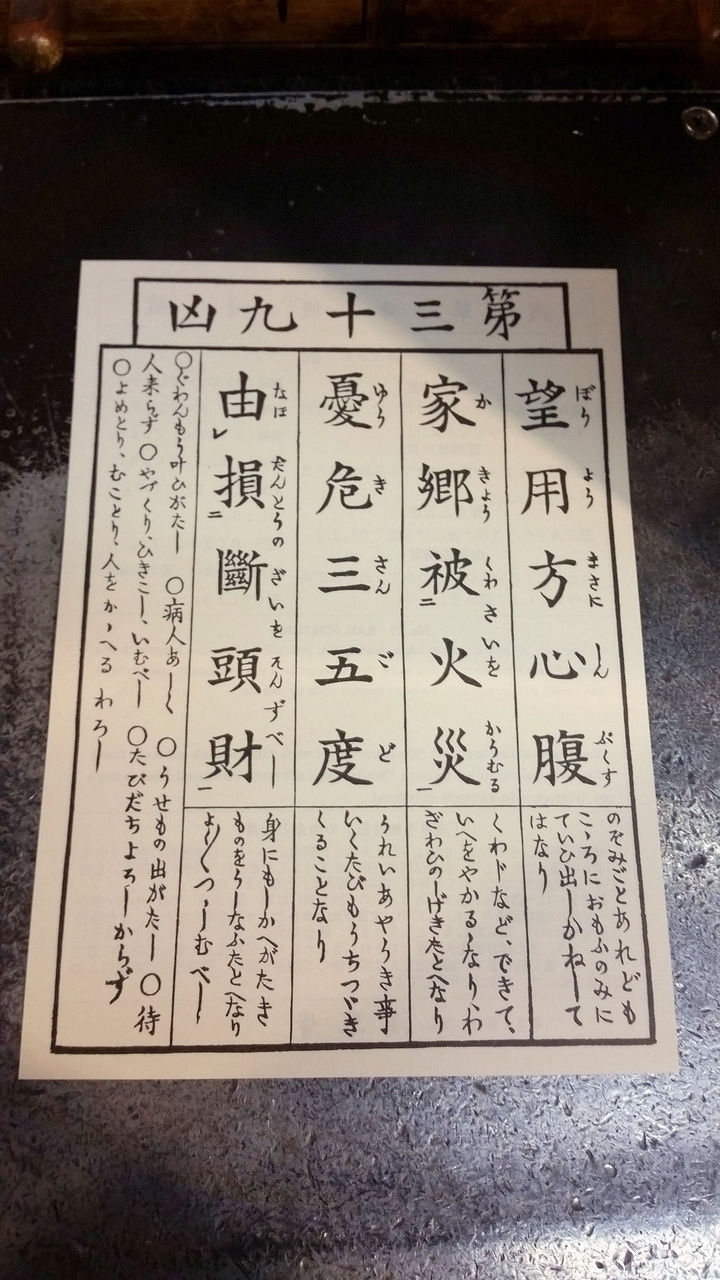 第三十九凶
望用方心腹
ぼう よう まさに しん ぷくす
のぞみごとあれども
こゝろにおもふのみに
ていひ出しかねして
はなり
家郷被二火災一
か きょう くわ さいを かうむる
くわドなど、できて、
いへをやかるゝなり、わ
ざわひのしげきたとへなり
憂危三五度
ゆう き さん ご ど
うれいあやうき事
いくたびもうちつゞき
くることなり
由レ損二斷頭財一
なほ だんとうの ざいを そんずべし
身にもしかへがたき
ものをうしなふたとへなり
よく〱つゝしむべし
〇ぐわんもう叶ひがたし 〇病人あしく 〇うせもの出がたし 〇待
人来らず 〇やづくり、ひきこし、いむべし 〇たびだちよろしからず
〇よめとり、むことり、人をかゝへるわろし